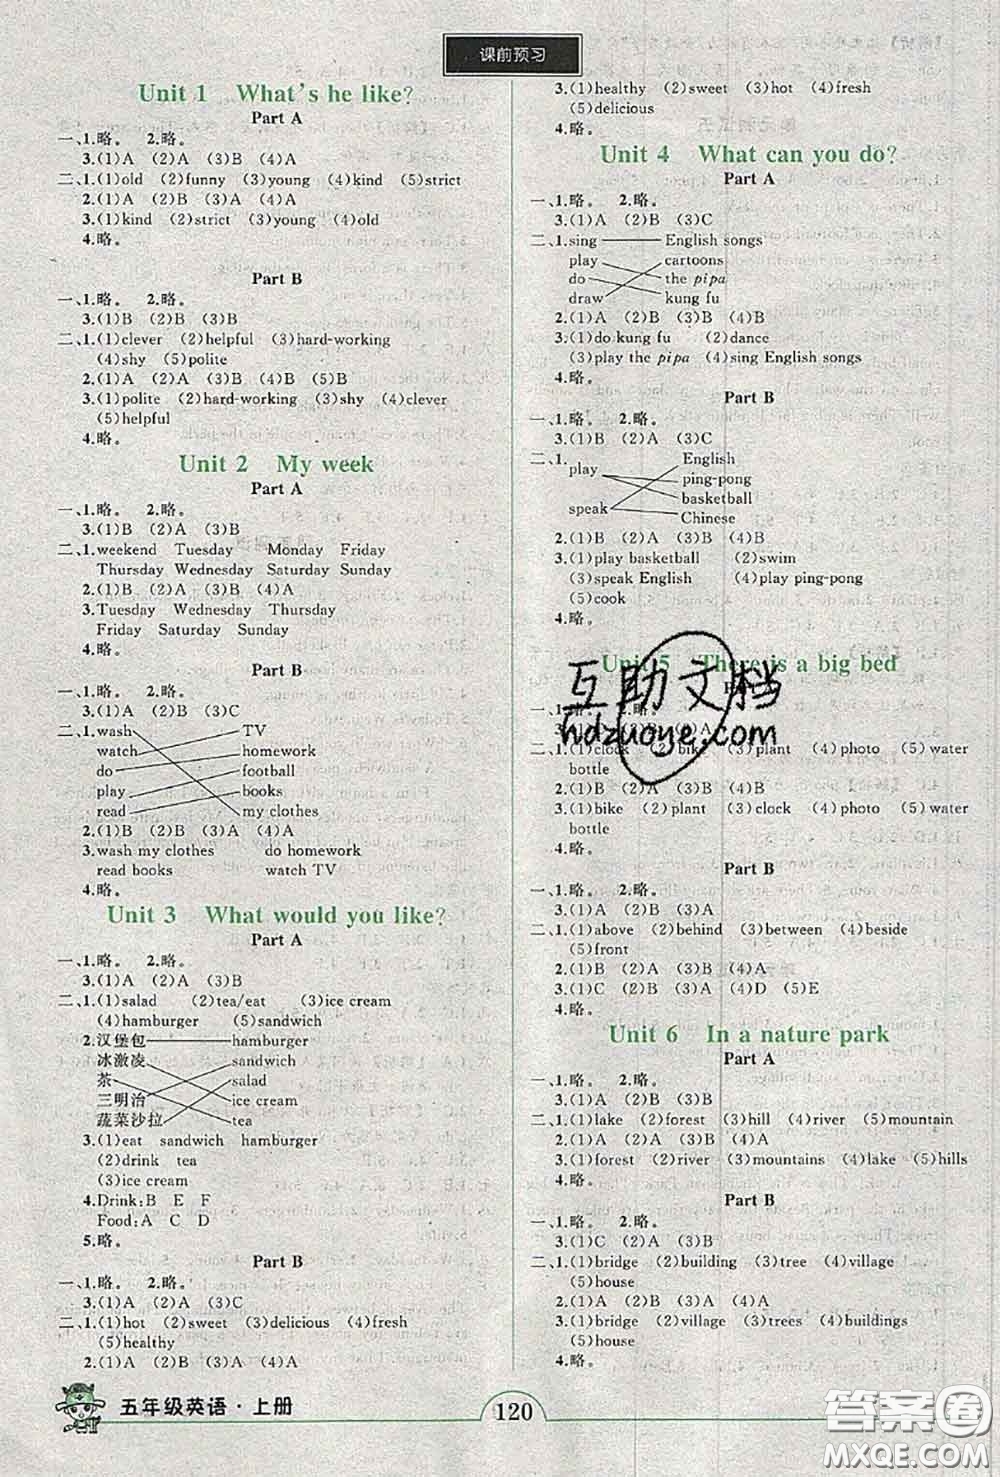 课前预习
Unit 1 What's he like?
Part A
一、1.略。 2.略。
3.(1)A (2)A (3)B (4)A
二、1.(1)old (2)funny (3)young (4)kind (5)strict
2.(1)A (2)B (3)A (4)A
3.(1)kind (2)strict (3)young (4)old
4.略。
Part B
一、1.略。 2.略。
3.(1)B (2)B (3)B
二、1.(1)clever (2)helpful (3)hard-working
(4)shy (5)polite
2.(1)A (2)A (3)B (4)B (5)B
3.(1)polite (2)hard-working (3)shy (4)clever
(5)helpful
4.略。
Unit 2 My week
Part A
一、1.略。 2.略。
3.(1)B (2)A (3)B
二、1.weekend Tuesday Monday Friday
Thursday Wednesday Saturday Sunday
2.(1)A (2)B (3)B (4)A
3.Tuesday Wednesday Thursday
Friday Saturday Sunday
4.略。
Part B
一、1.略。 2.略。
3.(1)A (2)B (3)C
二、1.wash TV
watch homework
do football
play books
read my clothes
2.(1)B (2)B (3)A (4)A
3.wash my clothes do homework
read books watch TV
4.略。
Unit 3 What would you like?
Part A
一、1.略。 2.略。
3.(1)A (2)A (3)B
二、1.(1)salad (2)tea/eat (3)ice cream
(4)hamburger (5)sandwich
2.汉堡包 hamburger
冰激凌 sandwich
茶 salad
三明治 ice cream
蔬菜沙拉 tea
3.(1)eat sandwich hamburger
(2)drink tea
(3)ice cream
4.Drink:B E F
Food:A C D
5.略。
Part B
一、1.略。 2.略。
3.(1)A (2)A (3)C
二、1.(1)hot (2)sweet (3)delicious (4)fresh
(5)healthy
2.(1)A (2)B (3)A (4)A
3.(1)healthy (2)sweet (3)hot (4)fresh
(5)delicious
4.略。
Unit 4 What can you do?
Part A
一、1.略。 2.略。
3.(1)A (2)B (3)C
二、1.sing English songs
play cartoons
do the pipa
draw kung fu
2.(1)A (2)B (3)B (4)B
3.(1)do kung fu (2)dance
(3)play the pipa (4)sing English songs
4.略。
Part B
一、1.略。 2.略。
3.(1)B (2)A (3)C
二、1. English
play ping-pong
basketball
speak Chinese
2.(1)B (2)A (3)A (4)B
3.(1)play basketball (2)swim
(3)speak English (4)play ping-pong
(5)cook
4.略。
Unit 5 There is a big bed
Part A
一、1.略。 2.略。
3.(1)A (2)B (3)A
二、1.(1)clock (2)bike (3)plant (4)photo (5)water
bottle
2.(1)B (2)A (3)B (4)B
3.(1)bike (2)plant (3)clock (4)photo (5)water
bottle
4.略。
Part B
一、1.略。 2.略。
3.(1)A (2)B (3)A
二、1.(1)above (2)behind (3)between (4)beside
(5)front
2.(1)B (2)A (3)A (4)A
3.(1)C (2)B (3)A (4)D (5)E
4.略。
Unit 6 In a nature park
Part A
一、1.略。 2.略。
3.(1)A (2)B (3)B
二、1.(1)lake (2)forest (3)hill (4)river (5)mountain
2.(1)A (2)A (3)B (4)A
3.(1)forest (2)river (3)mountains (4)lake (5)hills
4.略。
Part B
一、1.略。 2.略。
3.(1)C (2)A (3)B
二、1.(1)bridge (2)building (3)tree (4)village
(5)house
2.(1)A (2)B (3)A (4)A
3.(1)bridge (2)village (3)trees (4)buildings
(5)house
4.略。
互助文档
hdzuoye.com
五年级英语·上册
120
答案圈
MXQE.COM